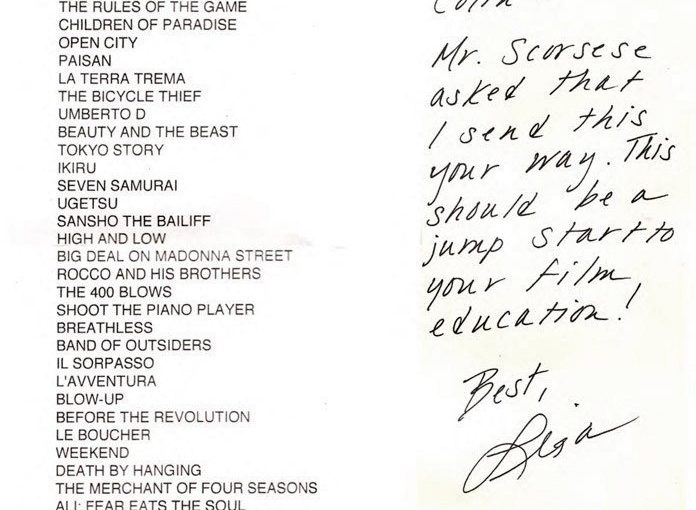 THE RULES OF THE GAME
CHILDREN OF PARADISE
OPEN CITY
PAISAN
LA TERRA TREMA
THE BICYCLE THIEF
UMBERTO D
BEAUTY AND THE BEAST
TOKYO STORY
IKIRU
SEVEN SAMURAI
UGETSU
SANSHO THE BAILIFF
HIGH AND LOW
BIG DEAL ON MADONNA STREET
ROCCO AND HIS BROTHERS
THE 400 BLOWS
SHOOT THE PIANO PLAYER
BREATHLESS
BAND OF OUTSIDERS
IL SORPASSO
L'AVVENTURA
BLOW-UP
BEFORE THE REVOLUTION
LE BOUCHER
WEEKEND
DEATH BY HANGING
THE MERCHANT OF FOUR SEASONS
ALI: FEAR EATS THE SOUL
Colin
Mr. Scorsese
asked that
I send this
your way. This
should be a
jump start to
your film
education!
Best,
Lisa